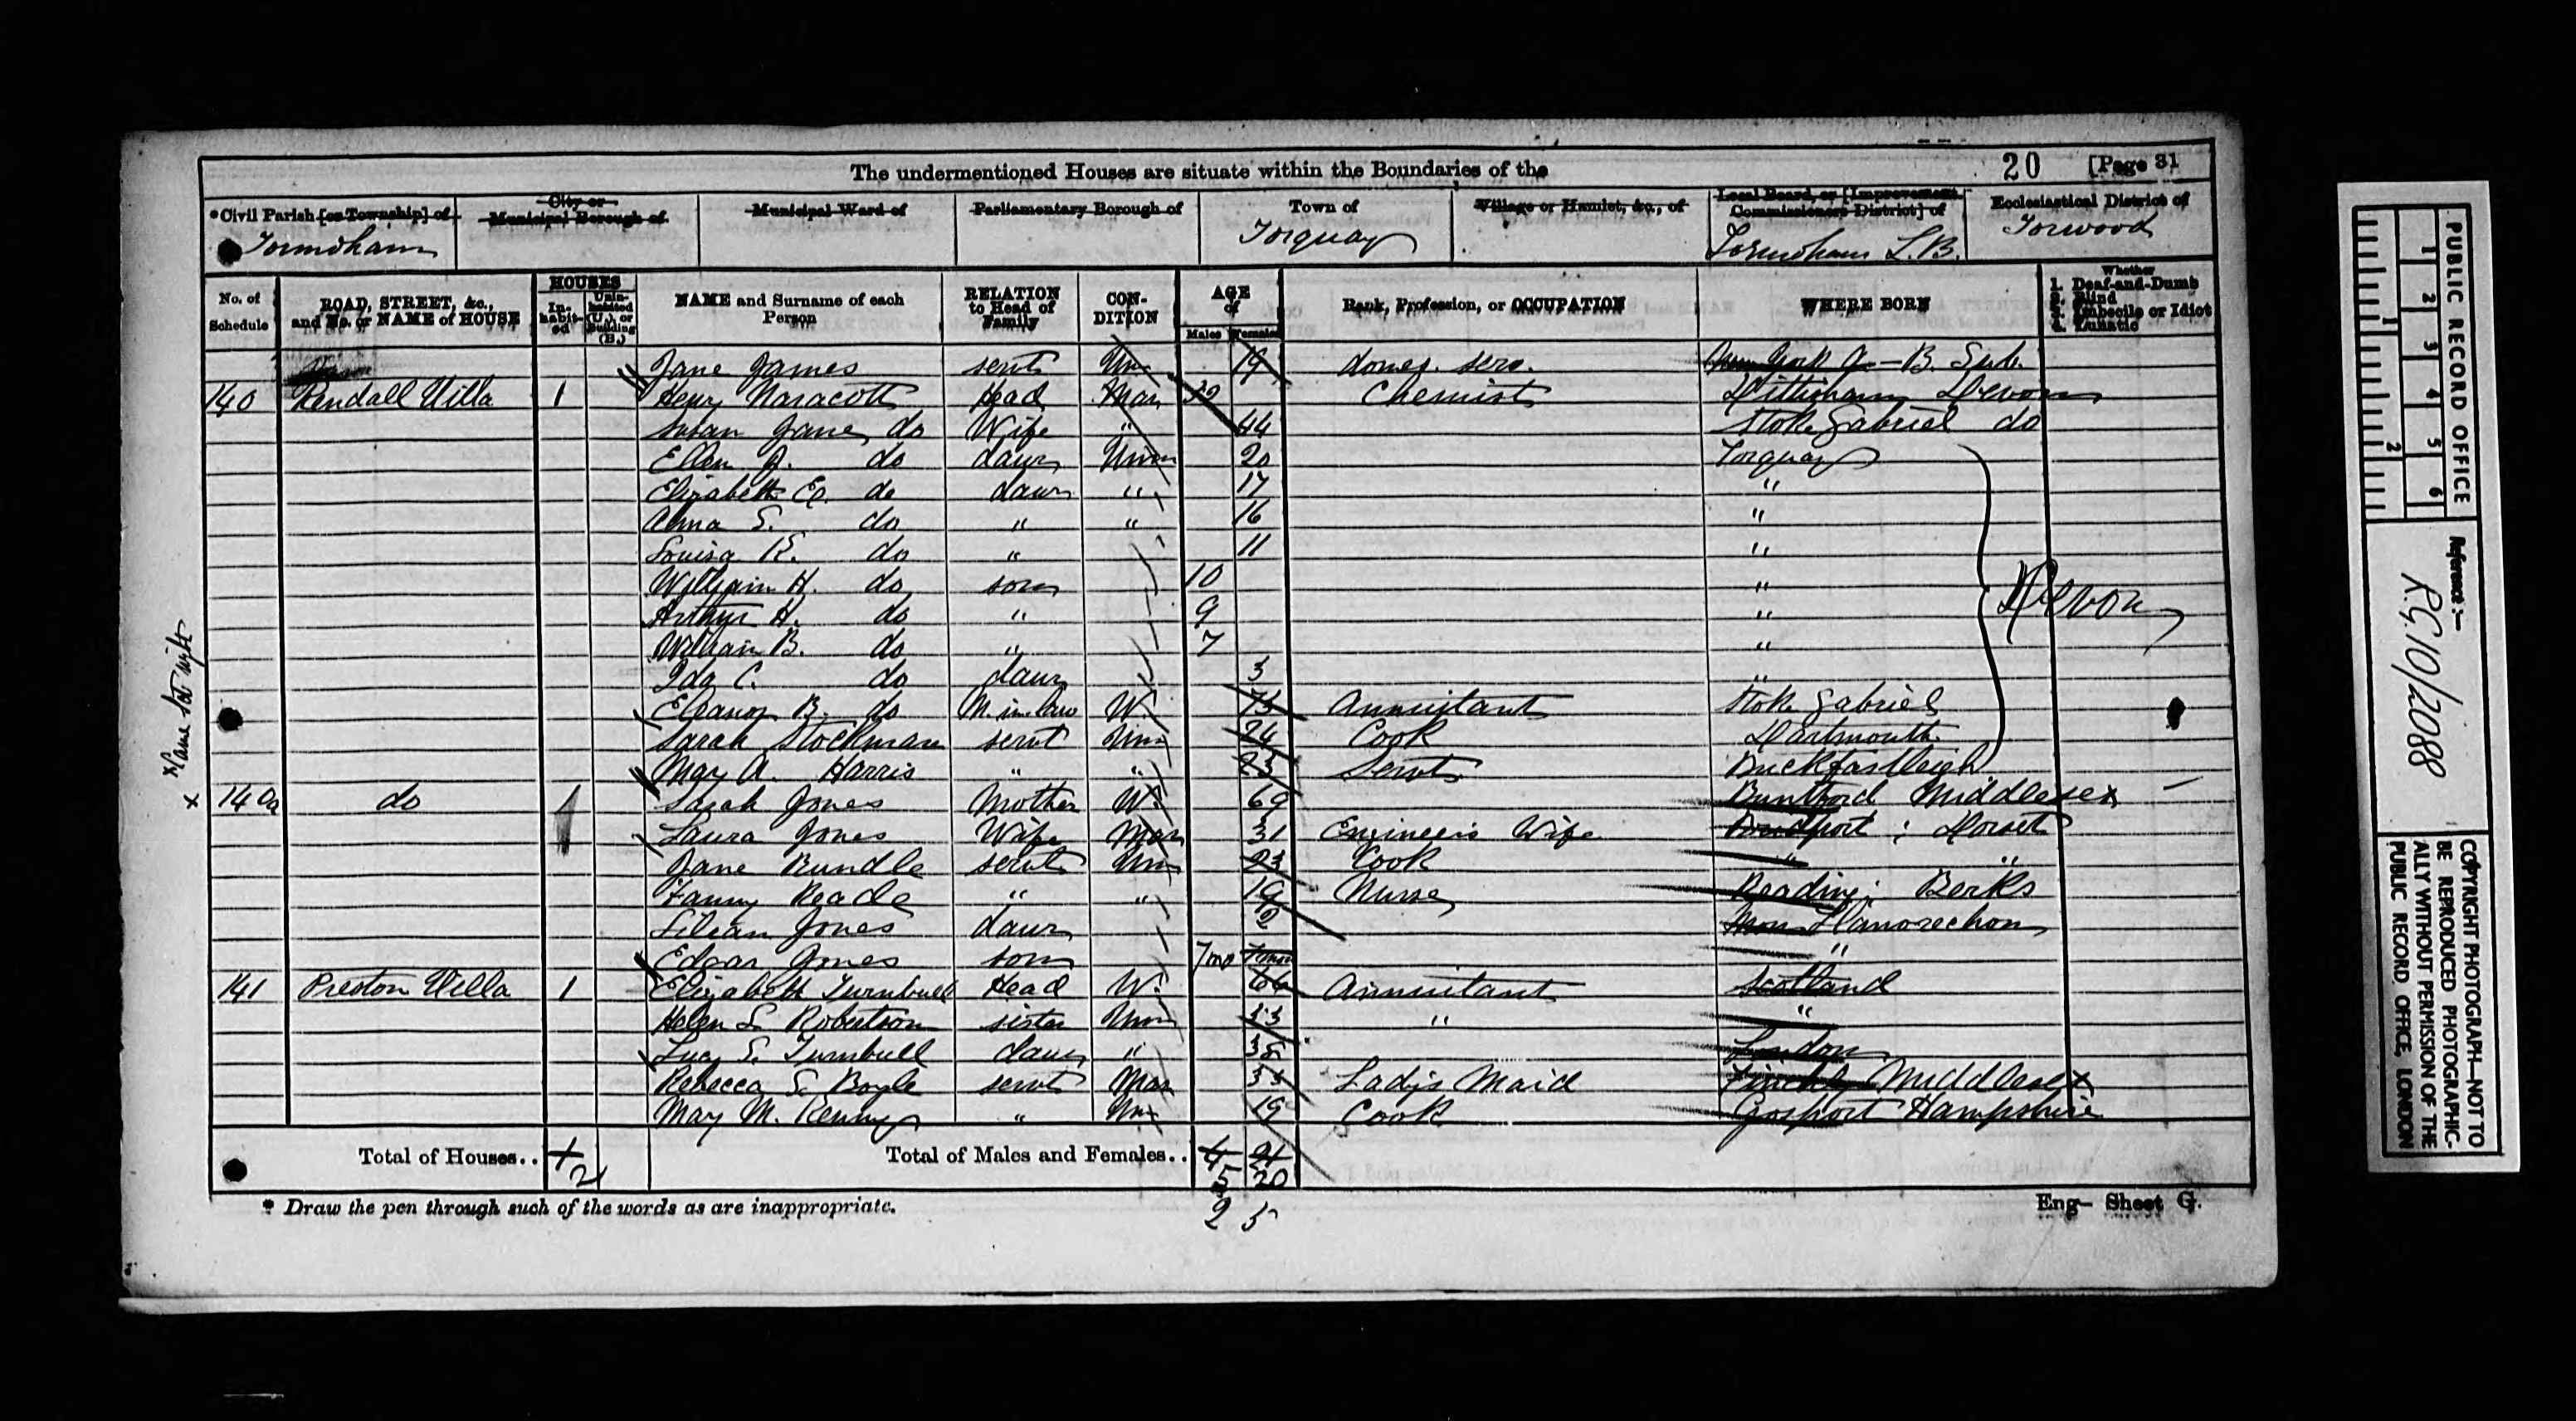 The undermentioned Houses are situate within the Boundaries of the 20 [Page 31
*Civil Parish [or Township] of City or Municipal Borough of Municipal Ward of Parliamentary Borough of Town of Village or Hamlet, &c., of Local Board, or [Improvement Commissioners District] of Ecclesiastical District of
Tormoham Torquay Tormoham L.B. Torwood
No. of Schedule ROAD, STREET, &c., and No. or NAME of HOUSE HOUSES In-habit-ed Unin-habited (U.), or Building (B.) NAME and Surname of each Person RELATION to Head of Family CON-DITION AGE of Males Females Rank, Profession, or OCCUPATION WHERE BORN Whether 1. Deaf-and-Dumb 2. Blind 3. Imbecile or Idiot 4. Lunatic
Jane James servt Un 19 domes. serv. B. Sub.
140 Kendall Villa 1 Henry Naracott Head Mar Chemist Dittisham Devon
Susan Jane do Wife " 44 Stoke Gabriel do
Ellen J. do daur Unm 20 Torquay
Elizabeth E. do daur " 17 "
Anna S. do " " 16 "
Louisa K. do " 11 "
William H. do son 10 "
Arthur H. do " 9 " Devon
William B. do " 7 "
Ida C. do daur 3 "
Eleanor B. do M. in law W. 73 Annuitant Stoke Gabriel
Sarah Stockman servt Unm 24 Cook Dartmouth
May A. Harris " " 23 Servt Buckfastleigh
x 140a do 1 Sarah Jones Mother W. 69 Middlesex
Laura Jones Wife Mar 31 Engineer's Wife Bridport : Dorset
Jane Rundle servt Unm 23 Cook " "
Fanny Reade " " 19 Nurse Reading : Berks
Lilian Jones daur 2 Mon
Edgar Jones son 7mo 7mon "
141 Preston Villa 1 Elizabeth Turnbull Head W. 66 Annuitant Scotland
Helen S. Robertson sister Unm 53 " "
Lucy S. Turnbull daur " 38 London
Rebecca S. Boyle servt Mar 33 Lady's Maid Finchley Middlesex
May M. Kenny " Un 19 Cook Gosport Hampshire
Total of Houses.. 2 Total of Males and Females.. 4 21
5 20
25
* Draw the pen through such of the words as are inappropriate. Eng— Sheet G.
x Came Sat night
PUBLIC RECORD OFFICE
1 2 3 4 5 6
1 2
Reference :—
R.G. 10/2088
COPYRIGHT PHOTOGRAPH—NOT TO BE REPRODUCED PHOTOGRAPHIC-ALLY WITHOUT PERMISSION OF THE PUBLIC RECORD OFFICE, LONDON